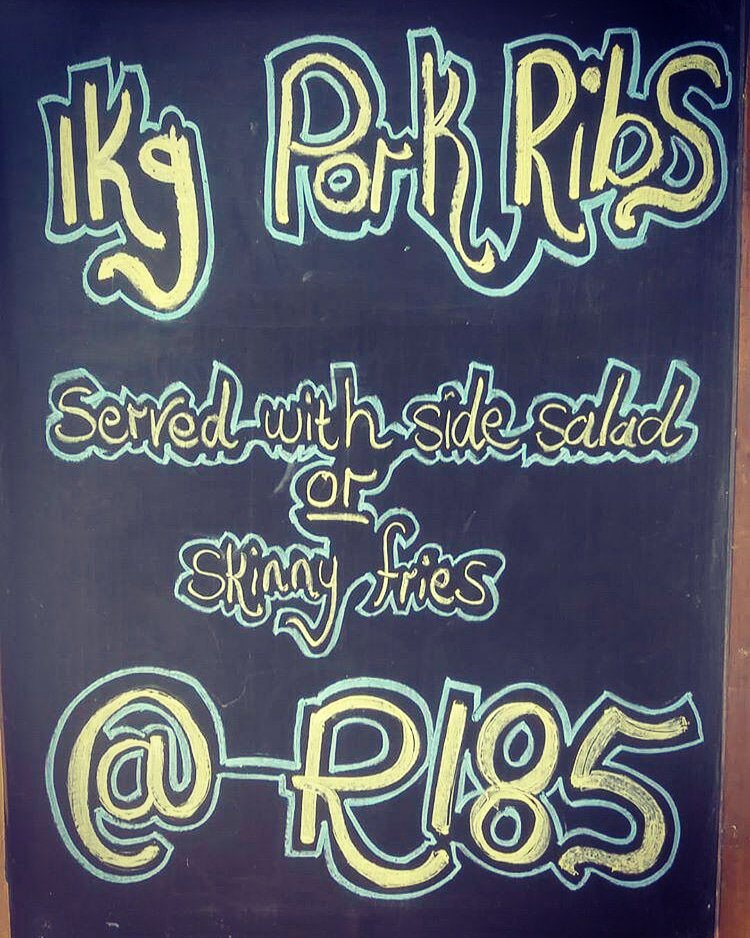 1Kg Pork Ribs
Served with side salad
or
skinny fries
@ R185